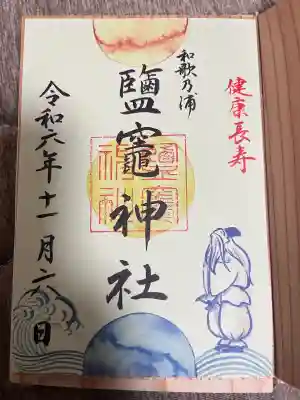 健康長寿
和歌乃浦
鹽竈神社
令和六年十一月六日